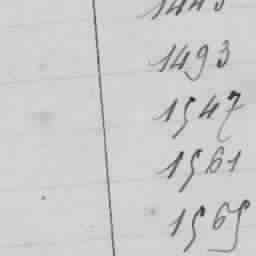 1493
1547
1561
1565